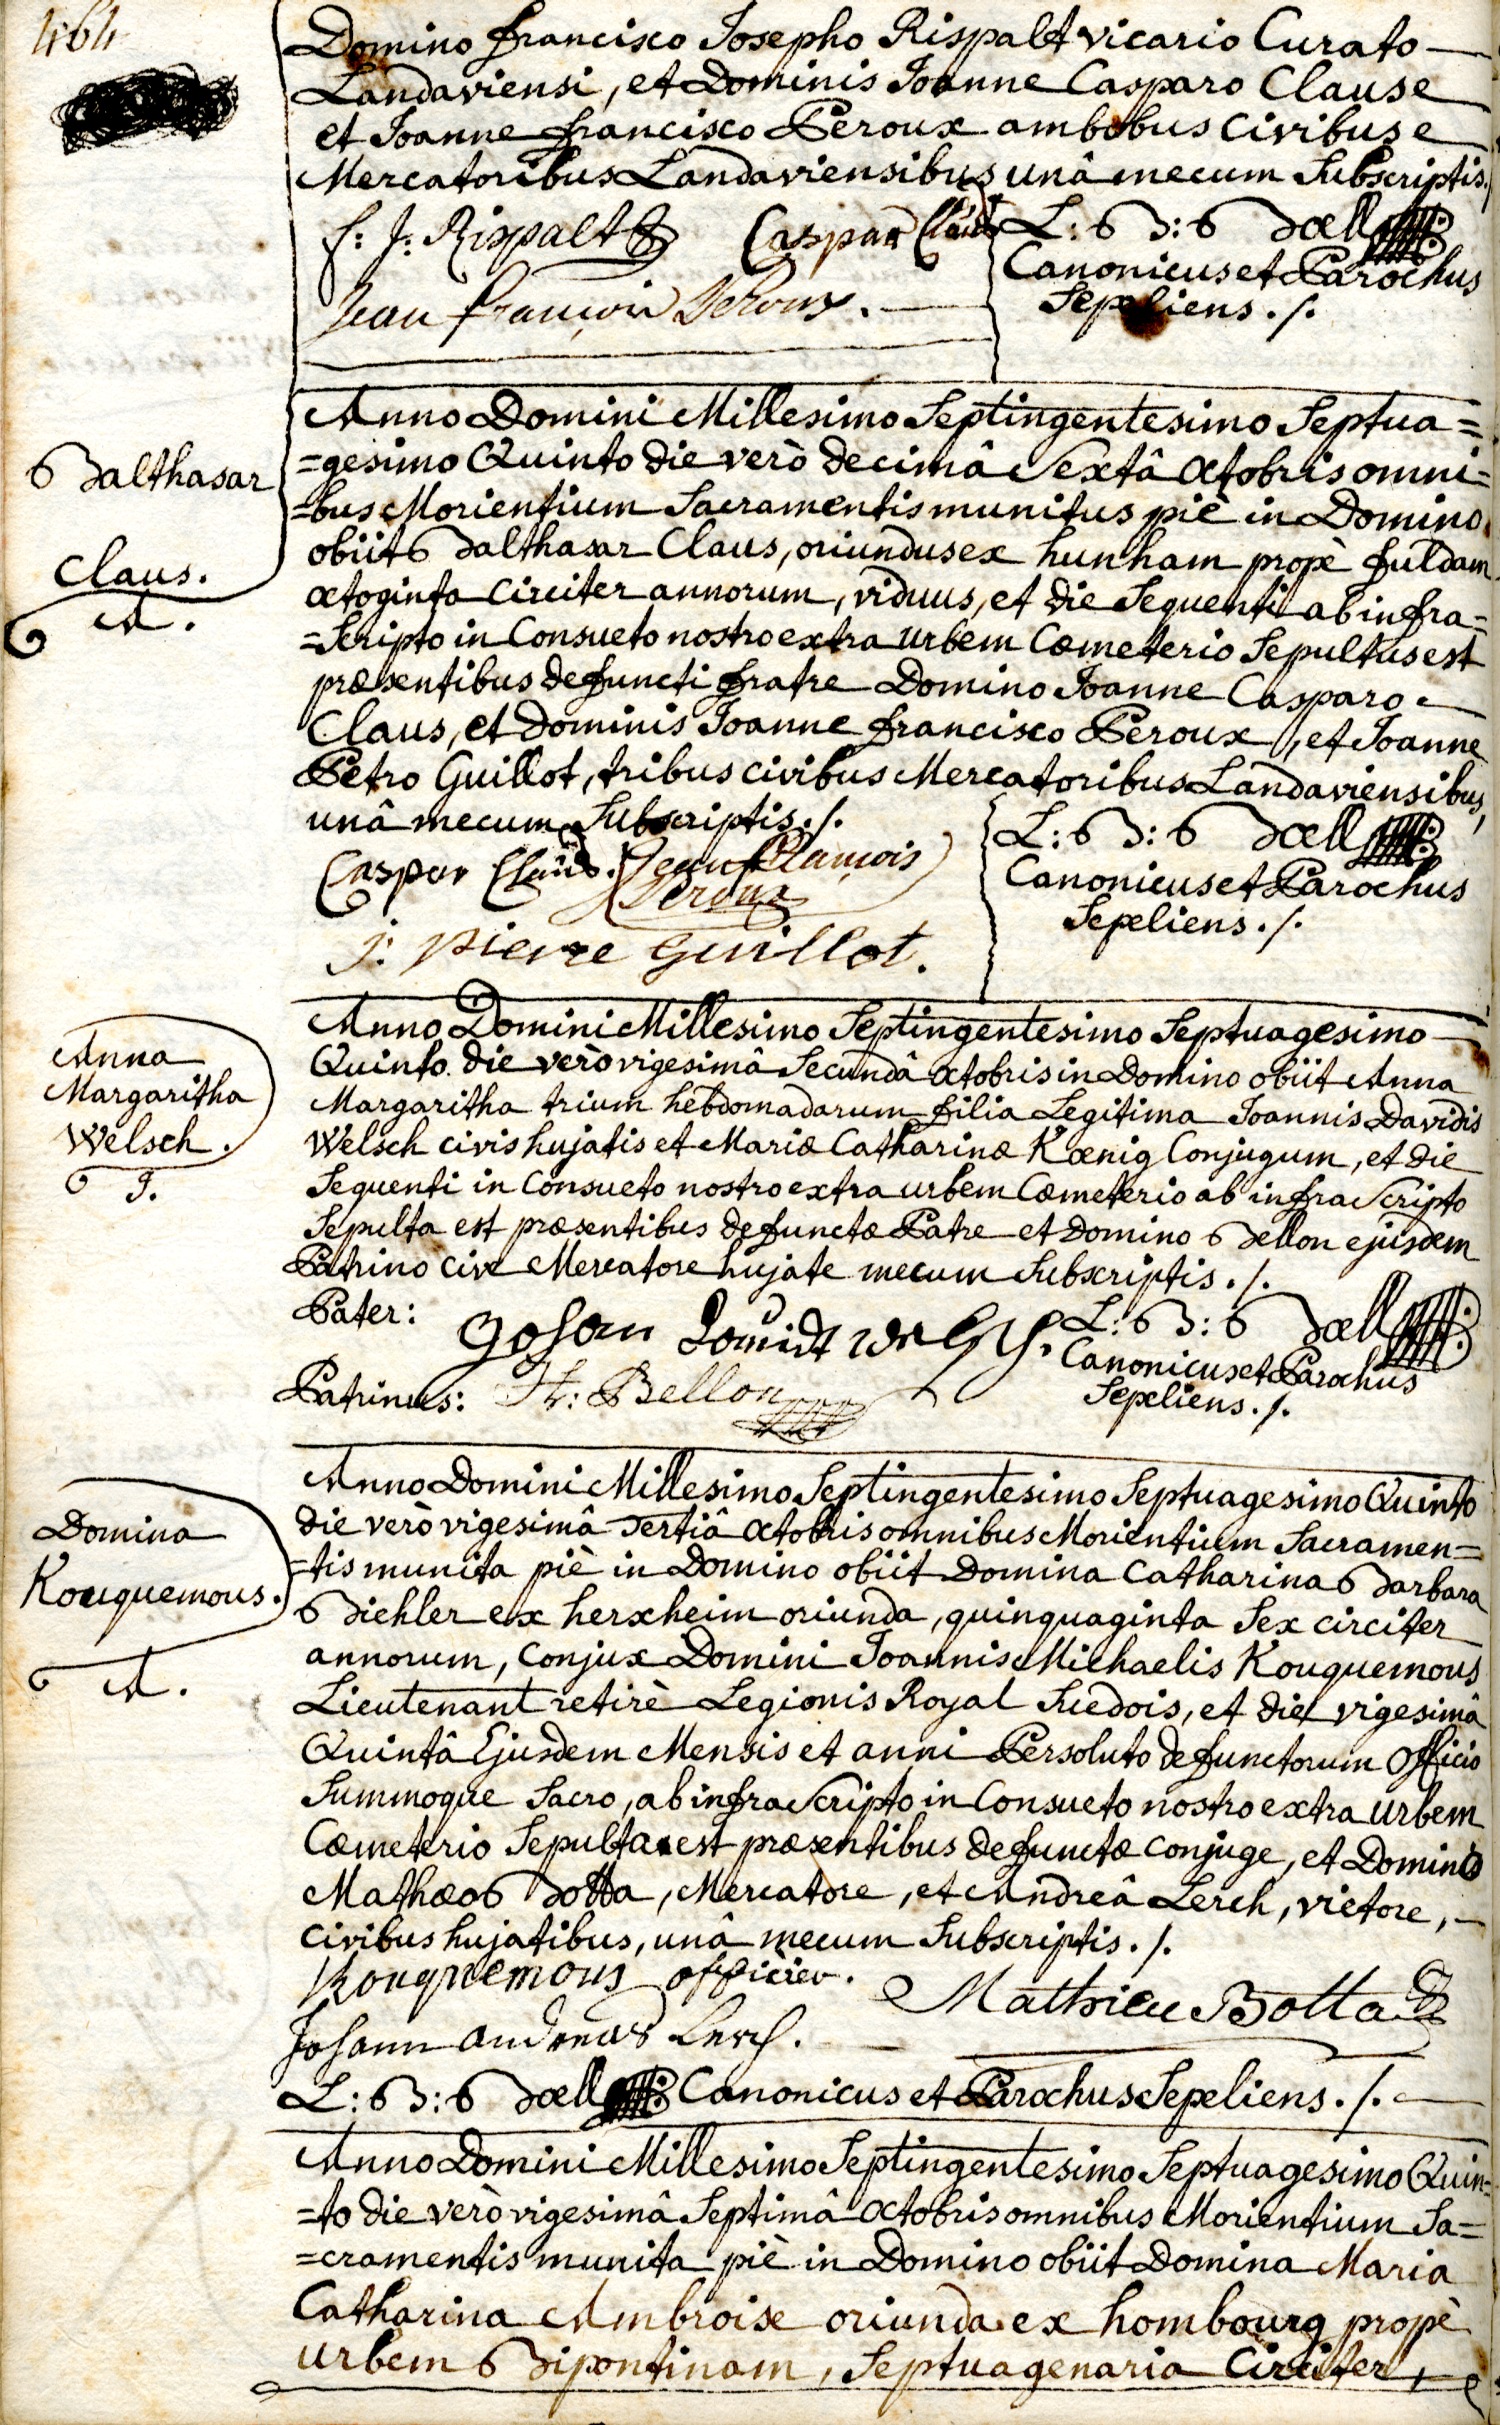 464
Domino Francisco Josepho Rispalt vicario Curato
Landaviensi, et Dominis Joanne Casparo Clause
et Joanne Francisco Peroux ambobus Civibus e
Mercatoribus Landaviensibus unâ mecum Subscriptis.
f: J: Rispalt Caspar Claus L: B: Boell
Canonicus et Parochus
Jean françois Peroux. Sepeliens ./.
Balthasar
Claus.
A.
Anno Domini Millesimo Septingentesimo Septua=
=gesimo Quinto die verò decimâ Sextâ Octobris omni=
=bus Morientium Sacramentis munitus piè in Domino
obiit Balthasar Claus, oriundus ex hunham propè fuldam
octoginta Circiter annorum, viduus, et die Sequenti ab infra=
=Scripto in Consueto nostro extra urbem Cœmeterio Sepultus est
præsentibus defuncti fratre Domino Joanne Casparo
Claus, et Dominis Joanne francisco Peroux, et Joanne
Petro Guillot, tribus civibus Mercatoribus Landaviensibus,
unâ mecum Subscriptis ./.
Caspar Claus. Jean François Peroux
L: B: Boell
Canonicus et Parochus
Sepeliens ./.
j: pierre Guillot.
Anna
Margaritha
Welsch.
J.
Anno Domini Millesimo Septingentesimo Septuagesimo
Quinto die verò vigesimâ Secundâ Octobris in Domino obiit Anna
Margaritha trium hebdomadarum filia Legitima Joannis Davidis
Welsch civis hujatis et Mariæ Catharinæ Kœnig Conjugum, et die
Sequenti in Consueto nostro extra urbem Cœmeterio ab infra Scripto
Sepulta est præsentibus defunctæ Patre et Domino Bellon ejusdem
Patrino cive Mercatore hujate mecum Subscriptis ./.
Pater: Johan Dawidt Welsch. L: B: Boell
Canonicus et Parochus
Patrinus: Fr: Bellon Sepeliens ./.
Domina
Kouquemous.
A.
Anno Domini Millesimo Septingentesimo Septuagesimo Quinto
die verò vigesimâ Tertiâ Octobris omnibus Morientium Sacramen=
=tis munita piè in Domino obiit Domina Catharina Barbara
Biehler ex herxheim oriunda, quinquaginta Sex circiter
annorum, Conjux Domini Joannis Michaelis Kouquemous
Lieutenant retirè Legionis Royal Suedois, et die vigesimâ
Quintâ Ejusdem Mensis et anni Persoluto defunctorum Officio
Summoque Sacro, ab infra Scripto in Consueto nostro extra Urbem
Cœmeterio Sepulta est præsentibus defunctæ conjuge, et Dominis
Mathæo Botta, Mercatore, et Andreâ Lerch, vietore,
civibus hujatibus, unâ mecum Subscriptis ./.
Kouquemous officier. Mathieu Botta
Johann Andreas Lerch.
L: B: Boell Canonicus et Parochus Sepeliens ./.
Anno Domini Millesimo Septingentesimo Septuagesimo Quin=
=to die verò vigesimâ Septimâ Octobris omnibus Morientium Sa=
=cramentis munita piè in Domino obiit Domina Maria
Catharina Ambroise oriunda ex hombourg propè
urbem Bipontinam, Septuagenaria Circiter,